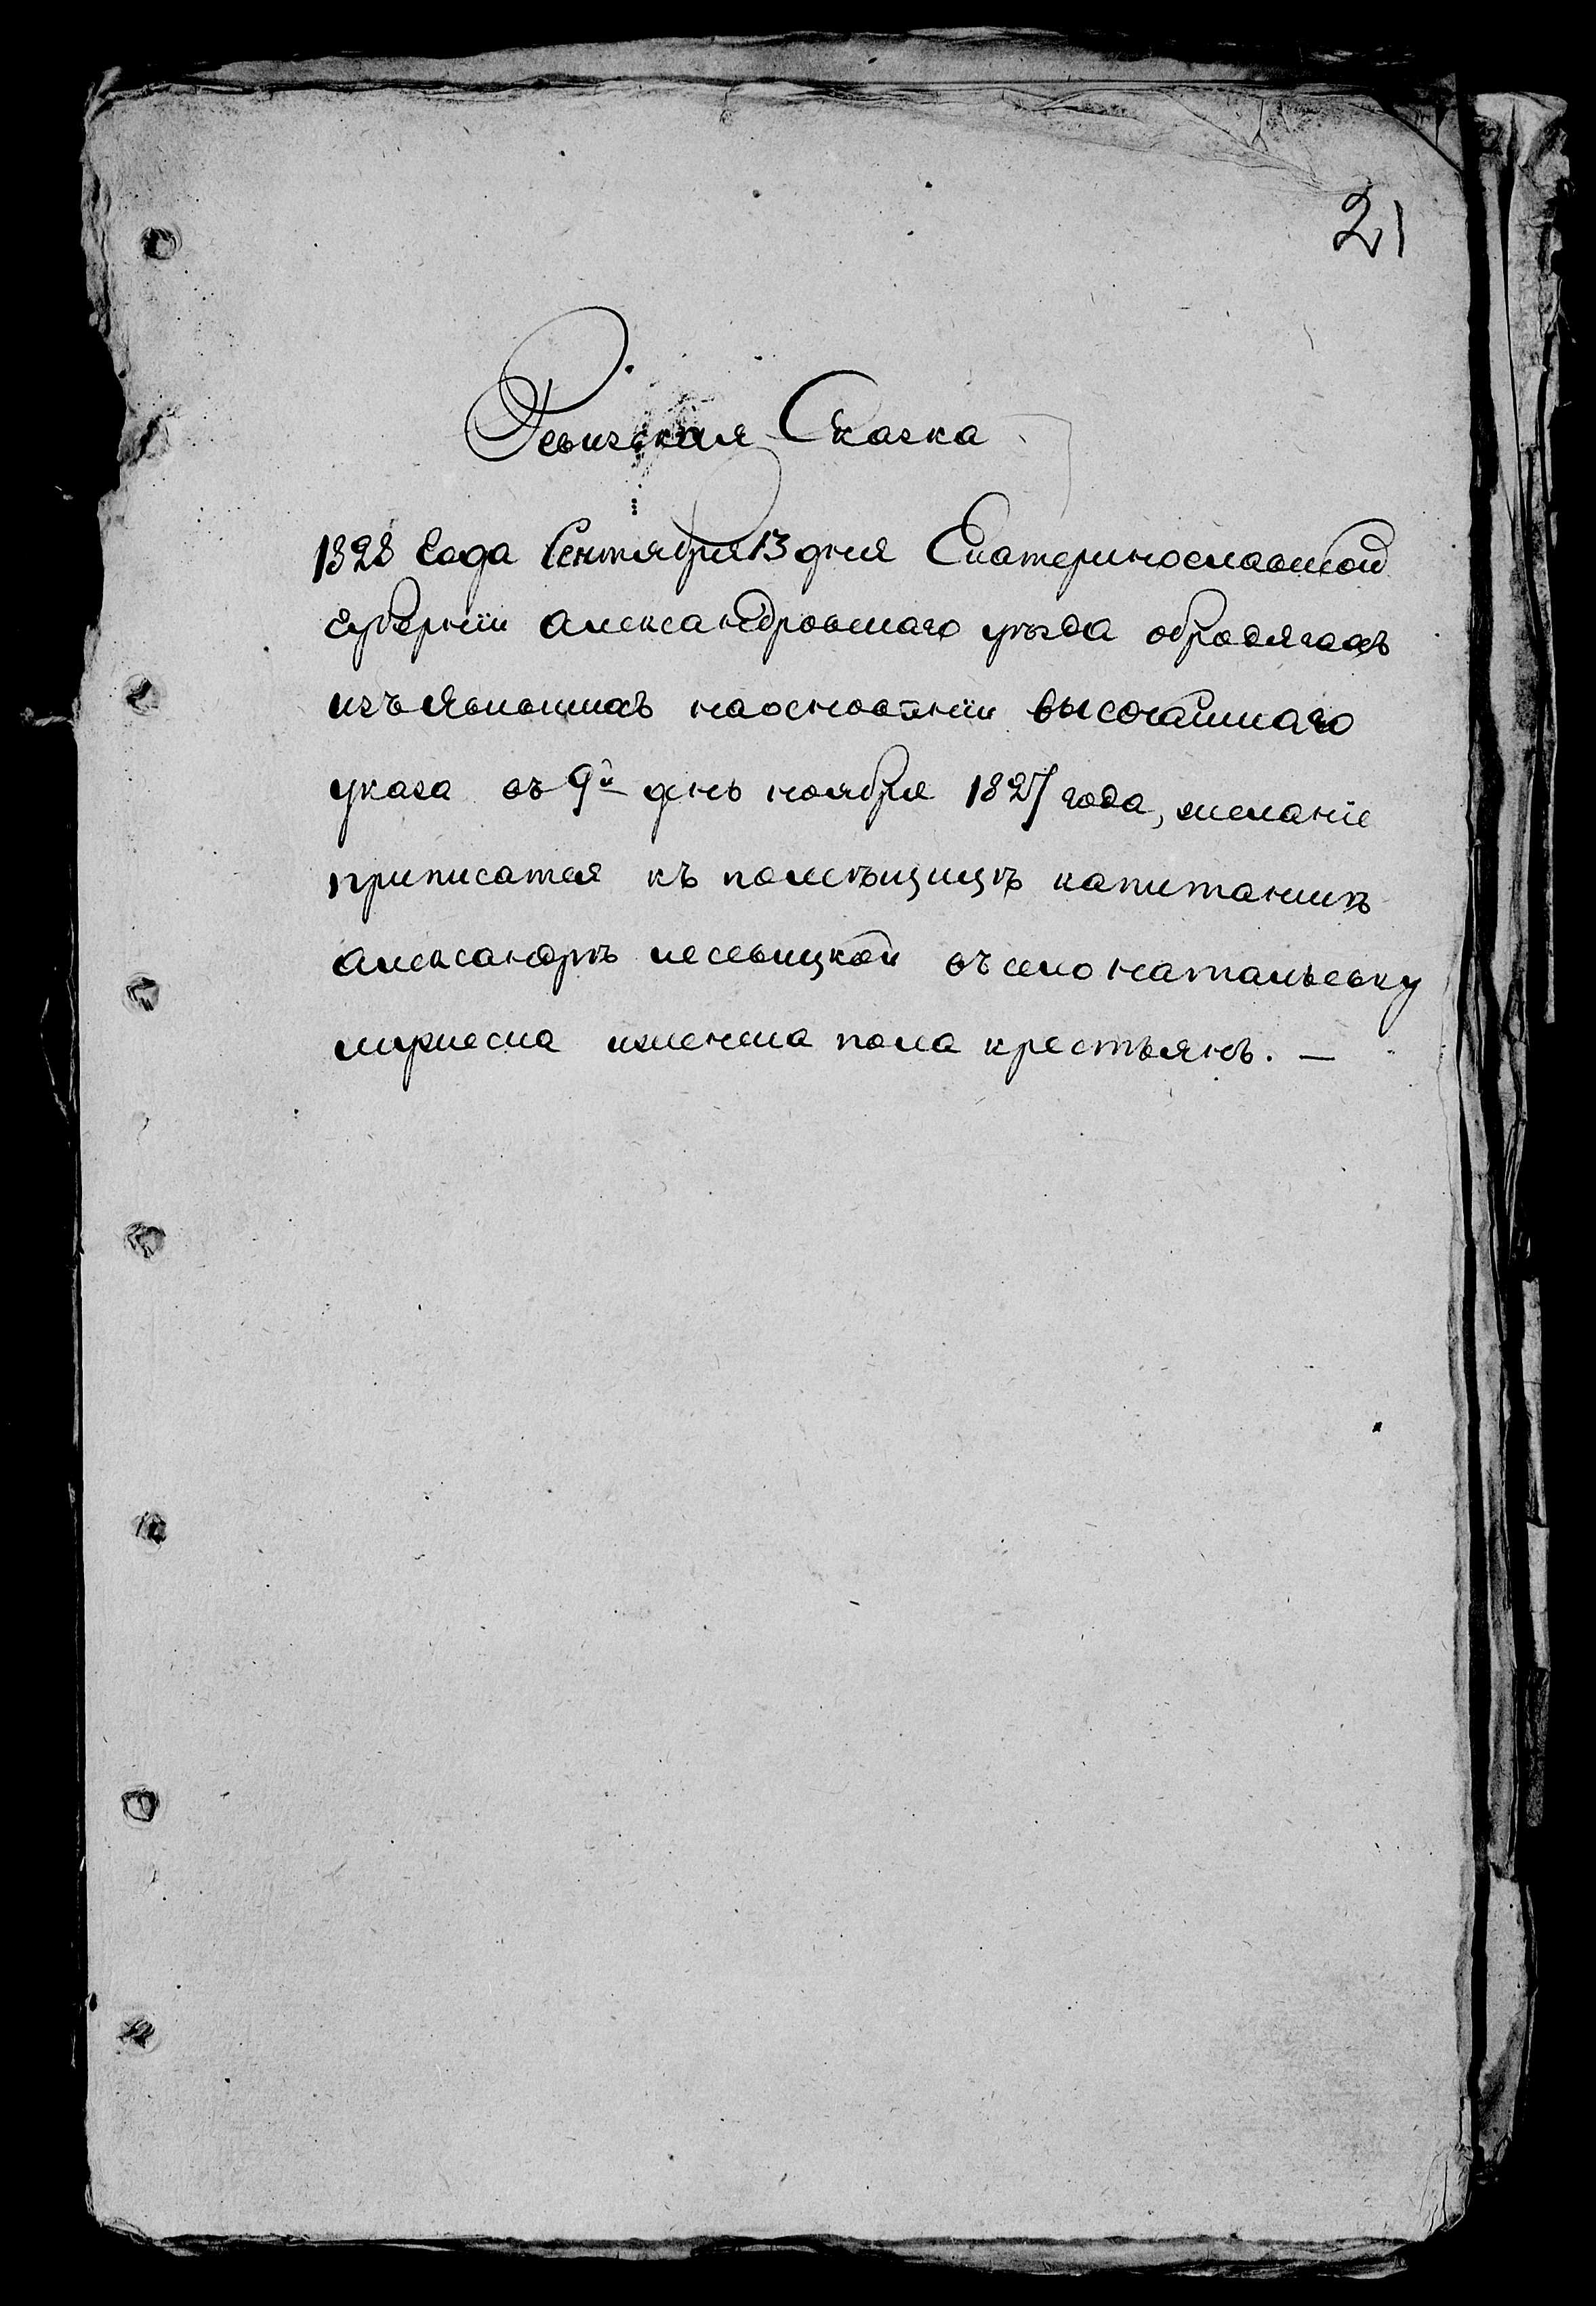 21
Ревизская Сказка
1828 года Сентября 13 дня Екатеринославской
губернїи александровскаго уѣзда обродягахъ
изъявившихъ наоснованїи высочайшаго
указа въ 9й день ноября 1827 года, желанїе
приписатся къ помѣщицѣ капитаншѣ
александрѣ лесевицкой въ село натальевку
мужеска иженска пола крестьянъ. —